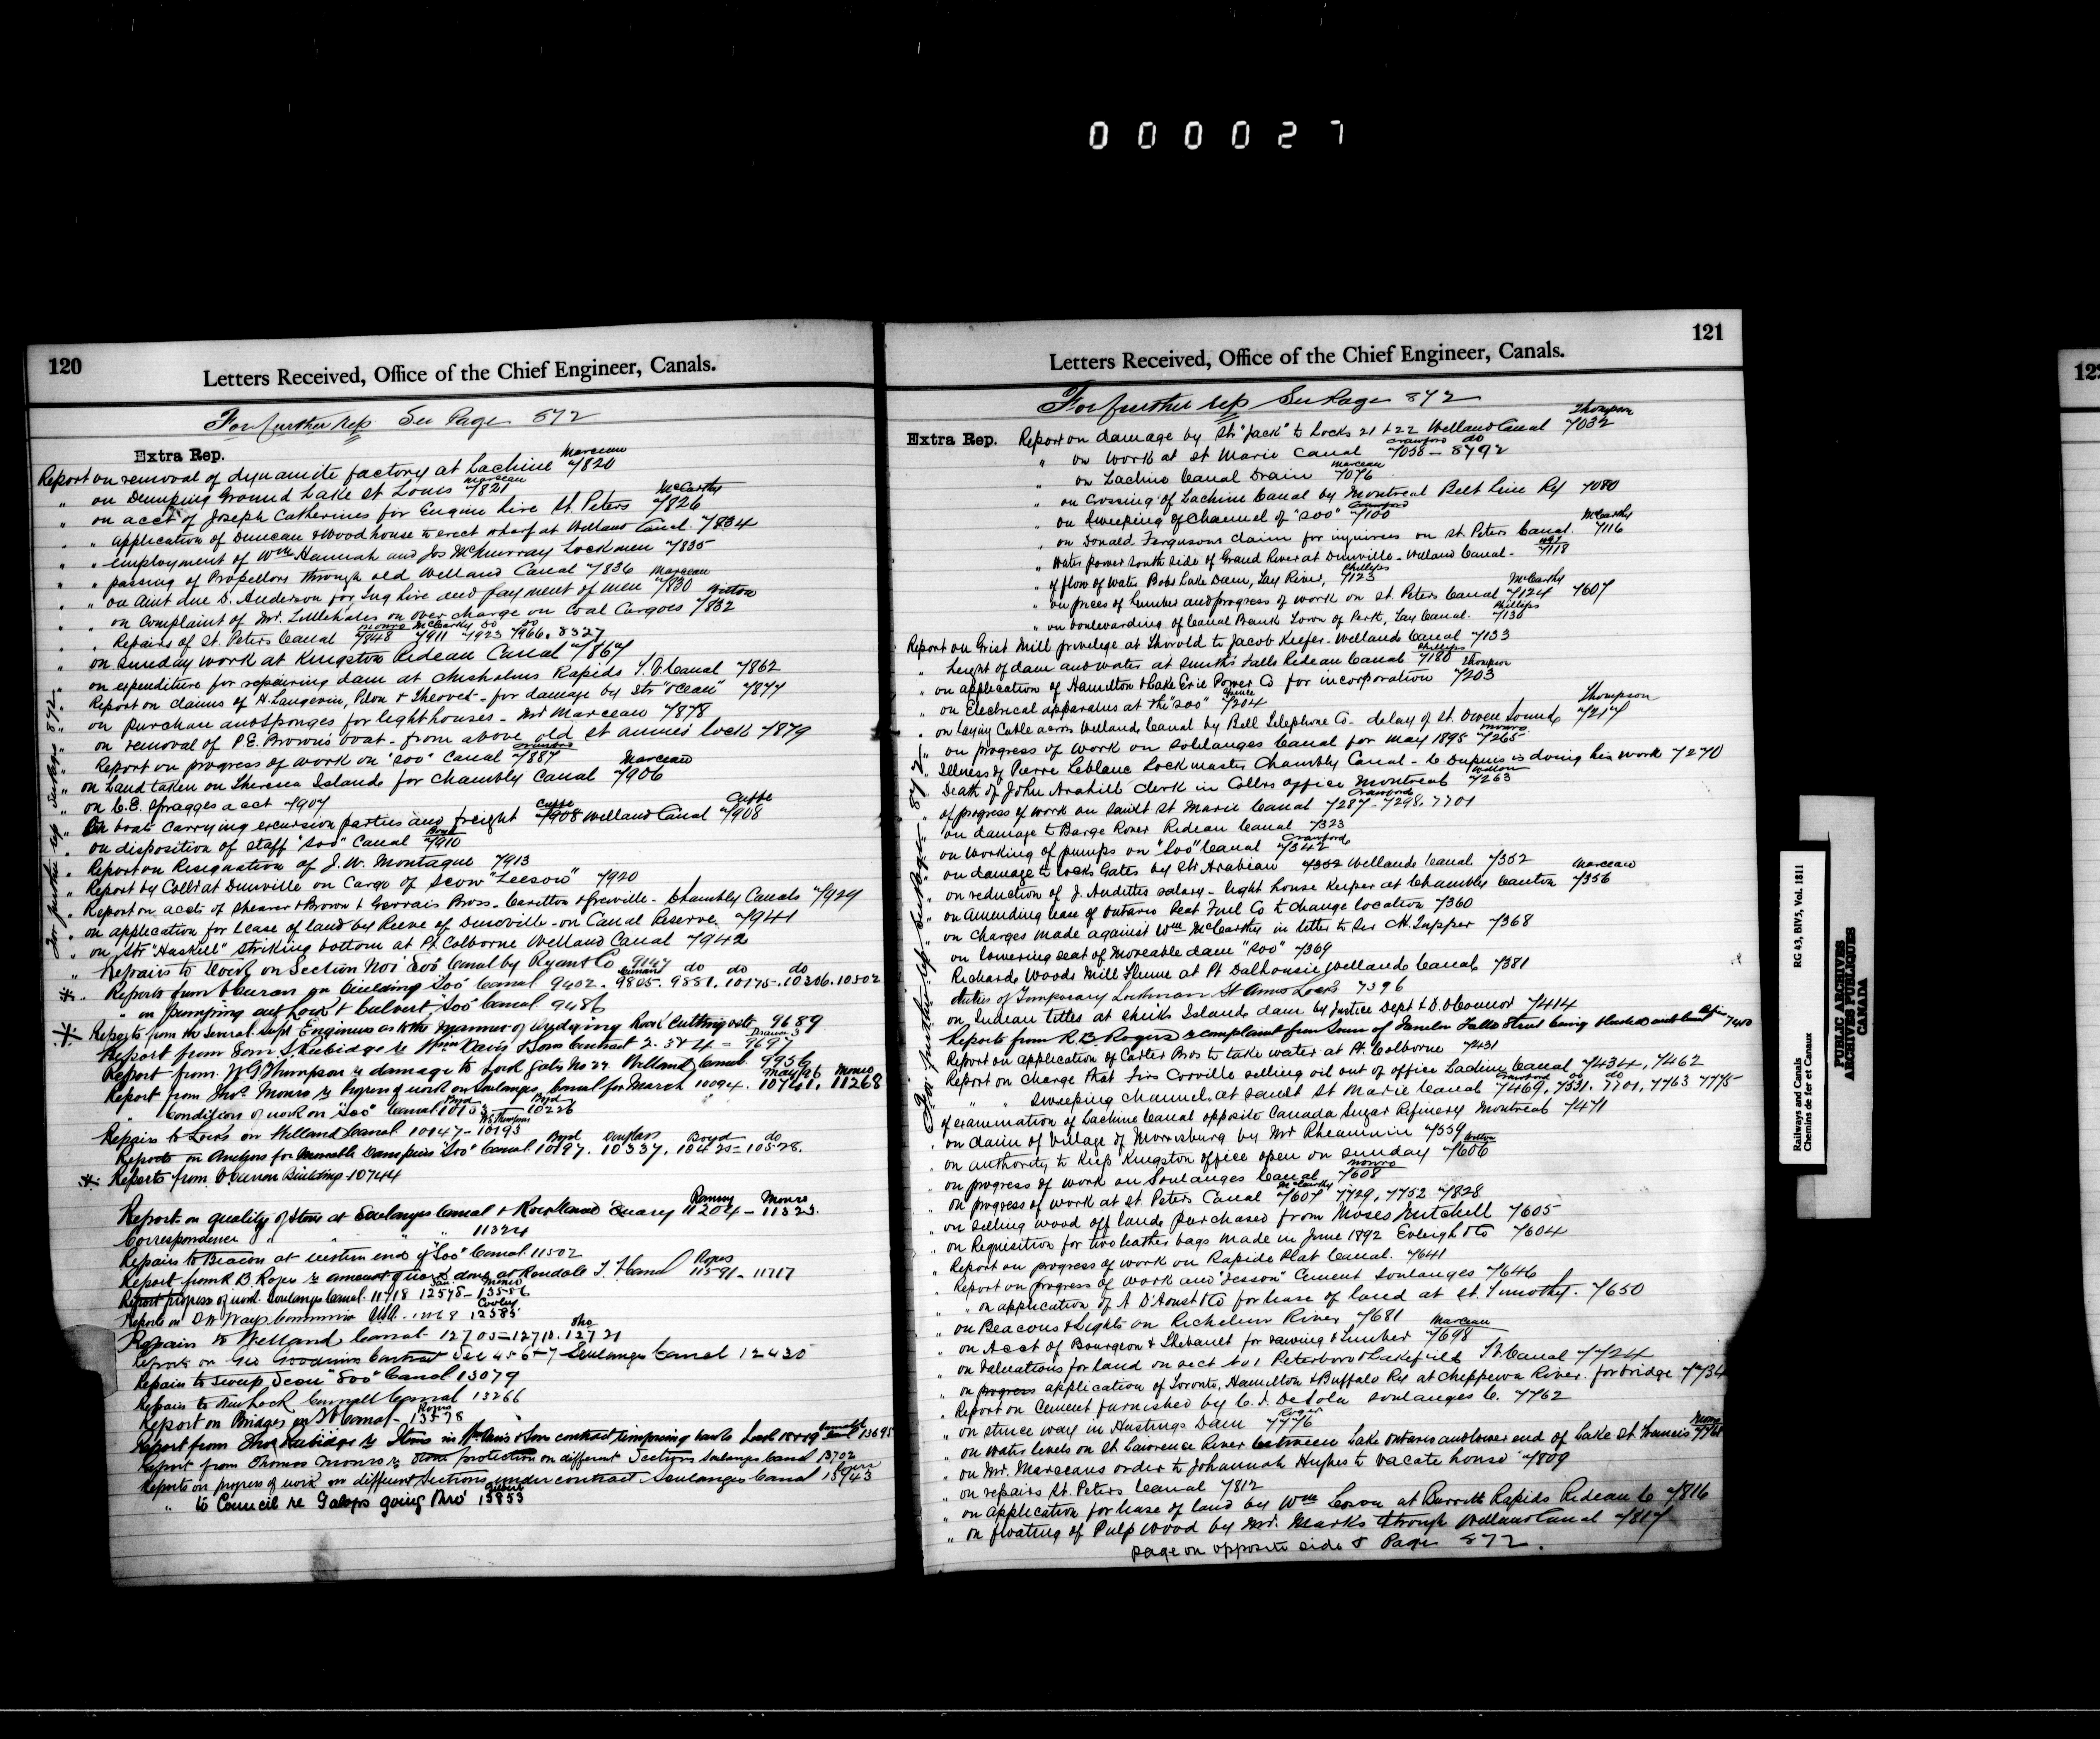 0 0 0 0 2 7
120
Letters Received, Office of the Chief Engineer, Canals.
For further rep See Page 872
Extra Rep.
Report on removal of dynamite factory at Lachine Marceau 7820
" on Dumping Ground Lake St Louis Marceau 7821
" on acct of Joseph Catherines for Engine hire St. Peters McCarthy 7826
" " application of Duncan & Woodhouse to erect wharf at Welland Canal. 7834
" " employment of Wm Hannah and Jos McMurray Lockmen 7835
" " passing of Propellors through old Welland Canal 7836
" " on Amt due D. Anderson for Tug hire and payment of men Marceau 7830
" on Complaint of Mr. Littlehales on over charge on Coal Cargoes Witton 7832
" Repairs of St. Peters Canal Monro 7848 McCarthy 7911 do 7923 do 7966. 8327
" on Sunday work at Kingston Rideau Canal 7867
" on expenditure for repairing dam at Chisholms Rapids T. V. Canal 7862
" Report on claims of H. Langevin, Pilon & Theoret - for damage by Str "Ocean" 7874
" on purchase and sponges for light houses - Mr Marceau 7878
" on removal of P.E. Brown's boat - from above old St Annes lock 7879
" Report on progress of work on "Soo" Canal Crawford 7887
" on Land taken on Theresa Islands for Chambly Canal Marceau 7906
" on C.E. Spragges acct 7907
" On boats carrying excursion parties and freight Cuppe 7908 Welland Canal Cuppe 7908
" on disposition of staff "Soo" Canal Boyd 7910
" Report on Resignation of J. W. Montague 7913
" Report by Collr at Dunville on Cargo of Scow "Leeson" 7920
" Report on accts of Shearer & Brown & Gervais Bros. Carillon & Grenville - Chambly Canals 7929
" on application for lease of land by Reeve of Dunville - on Canal Reserve. 7941
" on Str "Haskell" striking bottom at Pt Colborne Welland Canal 7942
" Repairs to Work on Section No 1 Soo Canal by Ryan & Co 9147
Reports from on building "Soo" Canal 9402. 9805. do 9881. do 10175. do 10306. 10502
" on pumping out Lock & Culvert "Soo" Canal 9486
Reports from the Genral Supt Engineer as to the manner of dredging Rock Cutting etc 9689
Report from Tom S Rubidge re Wm Davis & Sons Contract 2. 3 & 4 = 9697
Report from W G Thompson re damage to Lock Gates No 22 Welland Canal. 9956
Report from Thos. Monro re Progress of work on Soulanges Canal for March 10094. May/96 10741. Monro 11268
" Condition of work on "Soo" Canal Boyd 10103 Boyd 10226
Repairs to Locks on Welland Canal 10147 - W.G. Thompson 10193
Reports on Anchors for Movable Dam piers "Soo" Canal Boyd 10197. Douglass 10337. Boyd 10425 = do 10528.
Reports from Building 10744
Report on quality of stone at Soulanges Canal & Rockland Quarry 11204 - Monro 11323.
Correspondence " " " 11324
Repairs to Beacon at western end of "Soo" Canal 11502
Report from R B Rogers re amount of work done at Rondale T. Canal Rogers 11591 - 11717
Report progress of work Soulanges Canal. 11718 12578 - Monro 13586
Reports on D W Ways Commission USA. 12168 Cooley 12385
Repairs to Welland Canal - 12705 - 12710. 12721
Reports on Geo Goodwins Contract Sec 4 5 6 - 7 Soulanges Canal 12430
Repairs to Sweep Scow "Soo" Canal 13079
Repairs to Cornwall Canal 13266
Report on Bridges on T Canal - Rogers 13578
Report from Thos Rubidge re Items in Wm Davis & Sons contract Lock 18 & 19 Cornwall Canal 13695
Report from Thomas Monro re Stone protection on different Sections Soulanges Canal 13702
Reports on progress of work on different sections under contract Soulanges Canal 13943
" to Council re Galops going thro' 13853
For further rep See Page 872
121
Letters Received, Office of the Chief Engineer, Canals.
For further rep See Page 872
Extra Rep. Report on damage by Str "Jack" to Locks 21 & 22 Welland Canal Thompson 7032
" on work at St Marie Canal Crawford 7058 - do 8792
" on Lachine Canal Drain Marceau 7076
" on Crossing of Lachine Canal by Montreal Belt Line Ry 7080
" on Sweeping of Channel of "Soo" Crawford 7100
" on Donald Fergusons claim for injuries on St. Peters Canal. McCarthy 7116
" Water power South side of Grand River at Dunville - Welland Canal - 7118
" of flow of water Bobs Lake Dam, Tay River, Phillips 7123
" on prices of Lumber and progress of work on St. Peters Canal McCarthy 7124 7607
" on boulevarding of Canal Bank Town of Perth, Tay Canal. Phillips 7130
Report on Grist Mill privelege at Thorold to Jacob Keefer - Welland Canal 7133
" height of dam and water at Smiths Falls Rideau Canal Phillips 7180
" on application of Hamilton & Lake Erie Power Co for incorporation Thompson 7203
" on Electrical apparatus at the "Soo" 7204
" on laying Cable across Welland Canal by Bell Telephone Co - delay of St. Owen Sound Thompson 7217
" on progress of work on Soulanges Canal for May 1895 Monro 7265
" Illness of Pierre Leblanc Lockmaster Chambly Canal - C. Dupuis is doing his work 7270
" Death of John Arahill clerk in Collrs office Montreal Witton 7263
" of progress of work on Sault St Marie Canal 7287 - Crawford 7298. 7701
" on damage to Barge Rover Rideau Canal 7323
" on working of pumps on "Soo" Canal Crawford 7342
" on damage to Locks Gates by Str Arabian 7352 Welland Canal 7352
" on reduction of J. Audettes salary - light house Keeper at Chambly Canton Marceau 7356
" on Amending lease of Ontario Peat Fuel Co to change location 7360
" on Charges made against Wm McCarthy in letter to Sir C.H. Tupper 7368
on lowering seat of Moveable dam "Soo" 7369
Richard Woods Mill Flume at Pt Dalhousie Welland Canal 7381
duties of Temporary Lockman St Annes Locks 7396
on Indian titles at Sheiks Islands dam by Justice Dept & D. O'Connor 7414
Reports from R. B. Rogers re complaint from Town of Fenelon Falls Street being blocked with 7400
Report on application of Carter Bros to take water at Pt. Colborne 7431
Report on Charge that Firs Corville selling oil out of office Lachine Canal 7434, 7462
" " Sweeping channel at Sault St Marie Canal Crawford 7469, do 7531. do 7701, 7763 7775
of examination of Lachine Canal opposite Canada Sugar Refinery Montreal 7471
" on claim of Village of Morrisburg by Mr Rheaumin 7559
" on authority to Keep Kingston office open on Sunday Witton 7606
" on progress of work on Soulanges Canal Monro 7608
" on progress of work at St Peters Canal McCarthy 7607 7729, 7752 7828
" on selling wood off lands purchased from Moses Mitchell 7605
" on Requisition for two leather bags made in June 1892 Eveleigh & Co 7604
" Report on progress of work on Rapide Plat Canal. 7641
" Report on progress of work and "Jesson" Cement Soulanges 7646
" " on application of A D'Aoust & Co for lease of land at St. Timothy. 7650
" on Beacons & Lights on Richelieu River 7681
" on Acct of Bourgeon & Thebault for sawing & Lumber Marceau 7698
" on Valuations for land on sect No 1 Peterboro & Lakefield T V Canal 7724
" on progress application of Toronto, Hamilton & Buffalo Ry at Chippewa River. for bridge 7734
" Report on Cement furnished by C. I. De Sola Soulanges C. 7762
" on sluice way in Hastings Dam Roger 7776
" on water levels on St Lawrence River between Lake Ontario and lower end of Lake St. Francis Monro
" on Mr. Marceaus order to Johannah Hughes to vacate house 7809
" on repairs St. Peters Canal 7812
" on Application for lease of land by Wm at Burritts Rapids Rideau C 7816
" on floating of Pulp wood by Mr. Marks through Welland Canal 7817
page on opposite side & Page 872.
For further rep See Page 872
Railways and Canals RG 43, BIV5, Vol. 1811
Chemins de fer et Canaux
PUBLIC ARCHIVES
ARCHIVES PUBLIQUES
CANADA